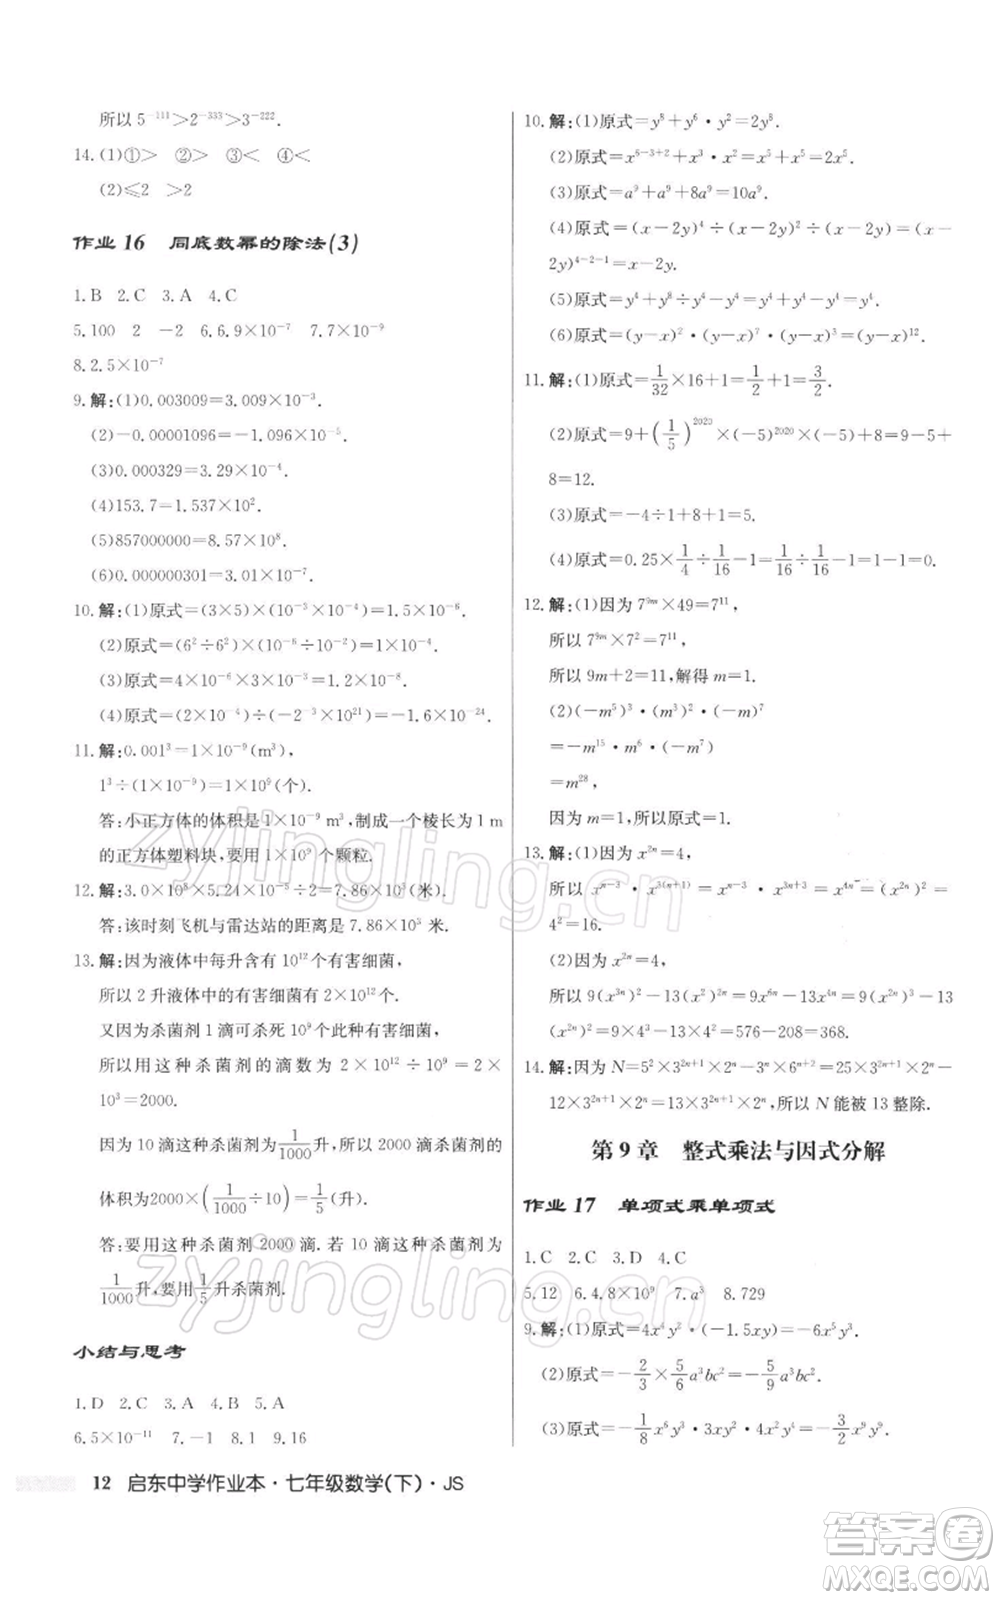 所以 5⁻¹¹¹>2⁻³³³>3⁻²²².
14.(1)①> ②> ③< ④<
(2)≤2 >2
作业 16 同底数幂的除法(3)
1.B 2.C 3.A 4.C
5.100 2 −2 6.6.9×10⁻⁷ 7.7×10⁻⁹
8.2.5×10⁻⁷
9.解:(1)0.003009=3.009×10⁻³.
(2)−0.00001096=−1.096×10⁻⁵.
(3)0.000329=3.29×10⁻⁴.
(4)153.7=1.537×10².
(5)857000000=8.57×10⁸.
(6)0.000000301=3.01×10⁻⁷.
10.解:(1)原式=(3×5)×(10⁻³×10⁻⁴)=1.5×10⁻⁶.
(2)原式=(6²÷6²)×(10⁻⁶÷10⁻²)=1×10⁻⁴.
(3)原式=4×10⁻⁶×3×10⁻²=1.2×10⁻⁷.
(4)原式=(2×10⁻⁴)÷(−2⁻³×10⁻²⁰)=−1.6×10⁻²⁴.
11.解:0.001³=1×10⁻⁹(m³),
1³÷(1×10⁻⁹)=1×10⁹(个).
答:小正方体的体积是 1×10⁻⁹ m³,制成一个棱长为 1 m
的正方体塑料块,要用 1×10⁹ 个颗粒.
12.解:3.0×10⁸×5.24×10⁻⁵÷2=7.86×10³(米).
答:该时刻飞机与雷达站的距离是 7.86×10³ 米.
13.解:因为液体中每升含有 10¹² 个有害细菌,
所以 2 升液体中的有害细菌有 2×10¹².
又因为杀菌剂 1 滴可杀死 10⁹ 个此种有害细菌,
所以用这种杀菌剂的滴数为 2×10¹²÷10⁹=2×
10³=2000.
因为 10 滴这种杀菌剂为 1/1000 升,所以 2000 滴杀菌剂的
体积为2000×(1/1000÷10)=1/5(升).
答:要用这种杀菌剂 2000 滴. 若 10 滴这种杀菌剂为
1/1000升,要用1/5升杀菌剂.
小结与思考
1.D 2.C 3.A 4.B 5.A
6.5×10⁻¹¹ 7.−1 8.1 9.16
10.解:(1)原式=y⁸+y⁶·y²=2y⁸.
(2)原式=x⁶⁻³⁺²+x³·x²=x⁵+x⁵=2x⁵.
(3)原式=a⁹+a⁹+8a⁹=10a⁹.
(4)原式=(x−2y)⁴÷(x−2y)²÷(x−2y)=(x−
2y)⁴⁻²⁻¹=x−2y.
(5)原式=y⁴+y⁸÷y⁴−y⁴=y⁴+y⁴−y⁴=y⁴.
(6)原式=(y−x)²·(y−x)⁷·(y−x)³=(y−x)¹².
11.解:(1)原式=1/32×16+1=1/2+1=3/2.
(2)原式=9+(1/5)²⁰²⁰×(−5)²⁰²⁰×(−5)+8=9−5+
8=12.
(3)原式=−4÷1+8+1=5.
(4)原式=0.25×1/4÷1/16−1=1/16÷1/16−1=1−1=0.
12.解:(1)因为 7⁹ᵐ×49=7¹¹,
所以 7⁹ᵐ×7²=7¹¹,
所以 9m+2=11,解得 m=1.
(2)(−m⁵)³·(m³)²·(−m)⁷
=−m¹⁵·m⁶·(−m⁷)
=m²⁸,
因为 m=1,所以原式=1.
13.解:(1)因为 x²ⁿ=4,
所以 xⁿ⁻³·x³⁽ⁿ⁺¹⁾=xⁿ⁻³·x³ⁿ⁺³=x⁴ⁿ=(x²ⁿ)²=
4²=16.
(2)因为 x²ⁿ=4,
所以 9(x³ⁿ)²−13(x²)²ⁿ=9x⁶ⁿ−13x⁴ⁿ=9(x²ⁿ)³−13
(x²ⁿ)²=9×4³−13×4²=576−208=368.
14.解:因为 N=5²×3²ⁿ⁺¹×2ⁿ−3ⁿ×3ⁿ⁺¹×2ⁿ⁺²=25×3²ⁿ⁺¹×2ⁿ−
12×3²ⁿ⁺¹×2ⁿ=13×3²ⁿ⁺¹×2ⁿ,所以 N 能被 13 整除.
第 9 章 整式乘法与因式分解
作业 17 单项式乘单项式
1.C 2.C 3.D 4.C
5.12 6.4.8×10⁹ 7.a³ 8.729
9.解:(1)原式=4x⁴y²·(−1.5xy)=−6x⁵y³.
(2)原式=−2/3×5/6a³bc²=−5/9a³bc².
(3)原式=−1/8x⁶y³·3xy²·4x²=−3/2x⁹y⁵.
12 启东中学作业本·七年级数学(下)·JS
zyjingling.cn
zyjingling.cn
答案卷
MXQE.COM